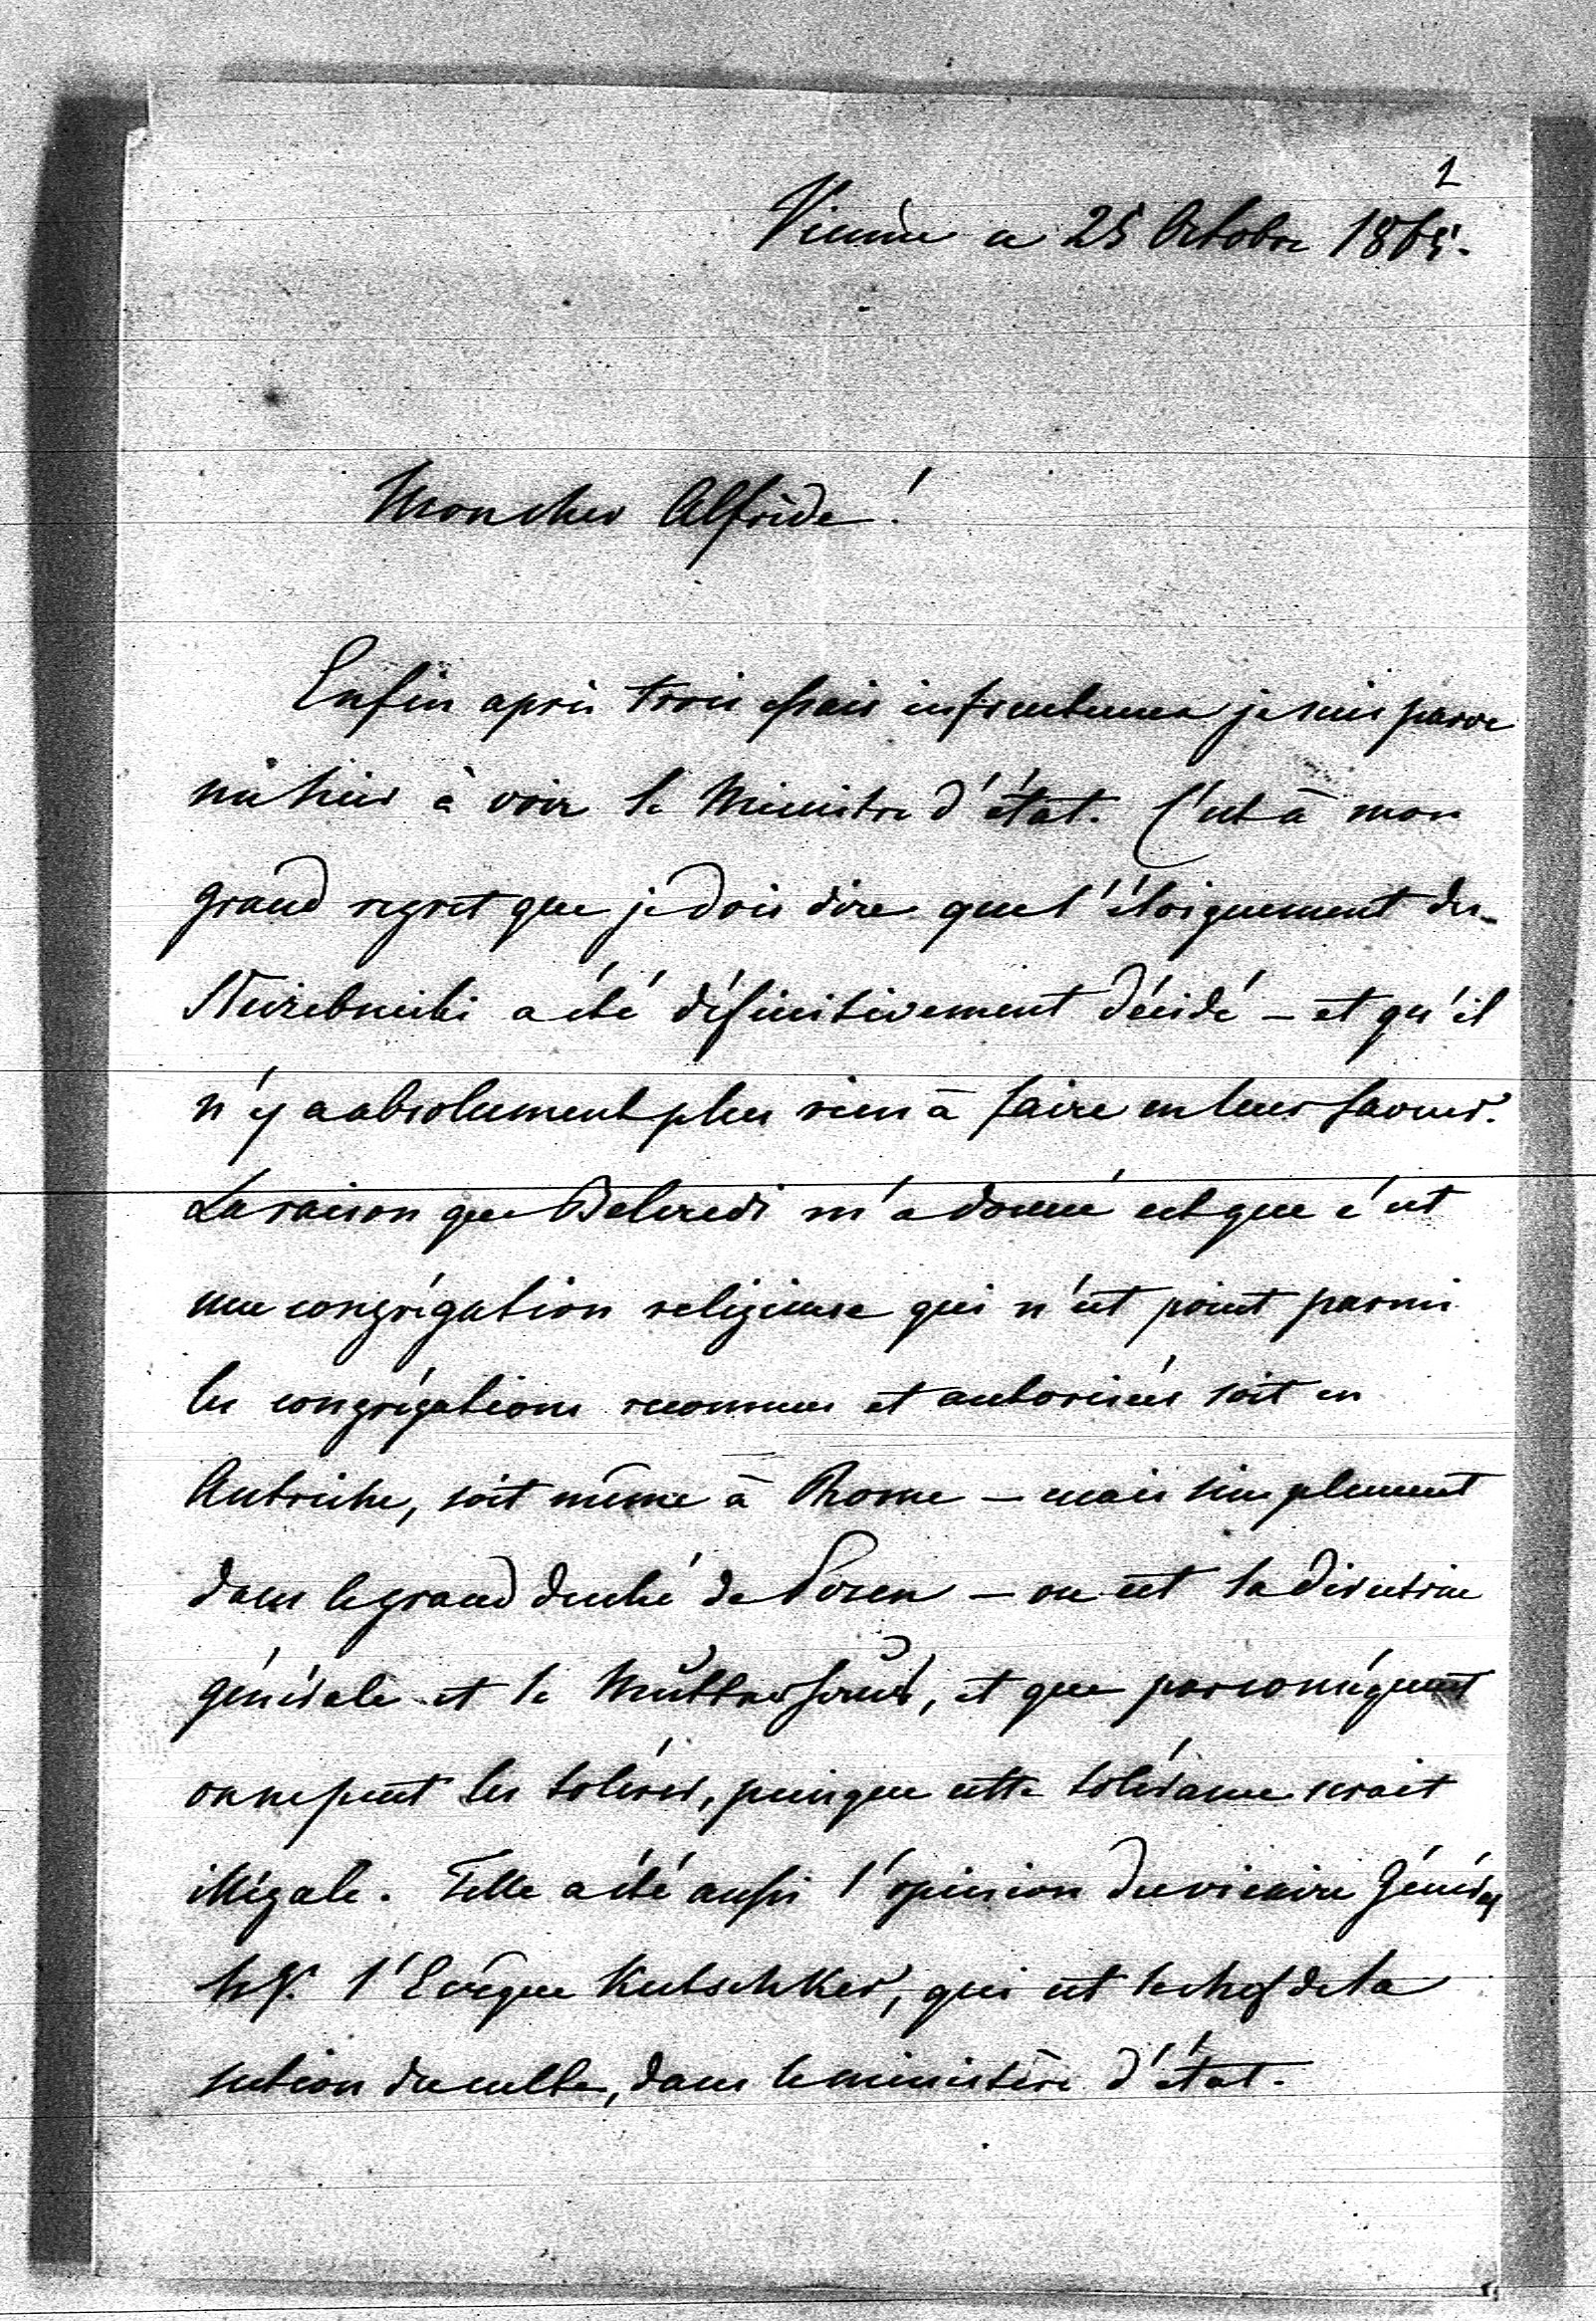 1
Vienne ce 25 Octobre 1865.
Mon cher Alfrède!
Enfin après trois essais infructueux je suis parve
nu hier à voir le Ministre d'état. C'est à mon
grand regret que je dois dire que l'éloignement des
Służebniczki a été définitivement décidé – et qu'il
n'y a absolument plus rien à faire en leur faveur.
La raison que Belcredi m'a donné est que c'est
une congrégation religieuse qui n'est point parmi
les congrégations reconnues et autorisées soit en
Autriche, soit même à Rome – mais simplement
dans le grand duché de Posen – ou est la directrice
générale et le Mutterhaus, et que par conséquent
on ne peut les tolérer, puisque cette tolérance serait
illégale. Telle a été aussi l'opinion du vicaire Général
Mgr. l'Evêque Kutschker, qui est le chef de la
section du culte, dans le ministère d'état.